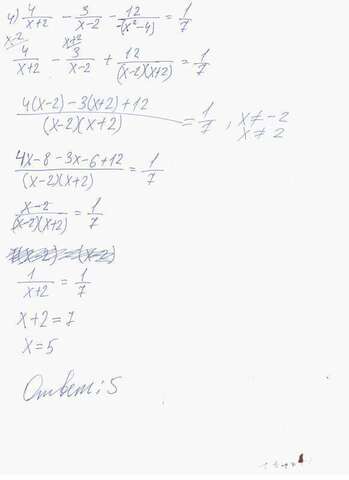 4) 4/(x+2) - 3/(x-2) - 12/(-(x²-4)) = 1/7
x-2 x+2
4/(x+2) - 3/(x-2) + 12/((x-2)(x+2)) = 1/7
(4(x-2)-3(x+2)+12)/((x-2)(x+2)) = 1/7, x≠-2
x≠2
(4x-8-3x-6+12)/((x-2)(x+2)) = 1/7
(x-2)/((x-2)(x+2)) = 1/7
1/(x+2) = 1/7
x+2=7
x=5
Ответ: 5